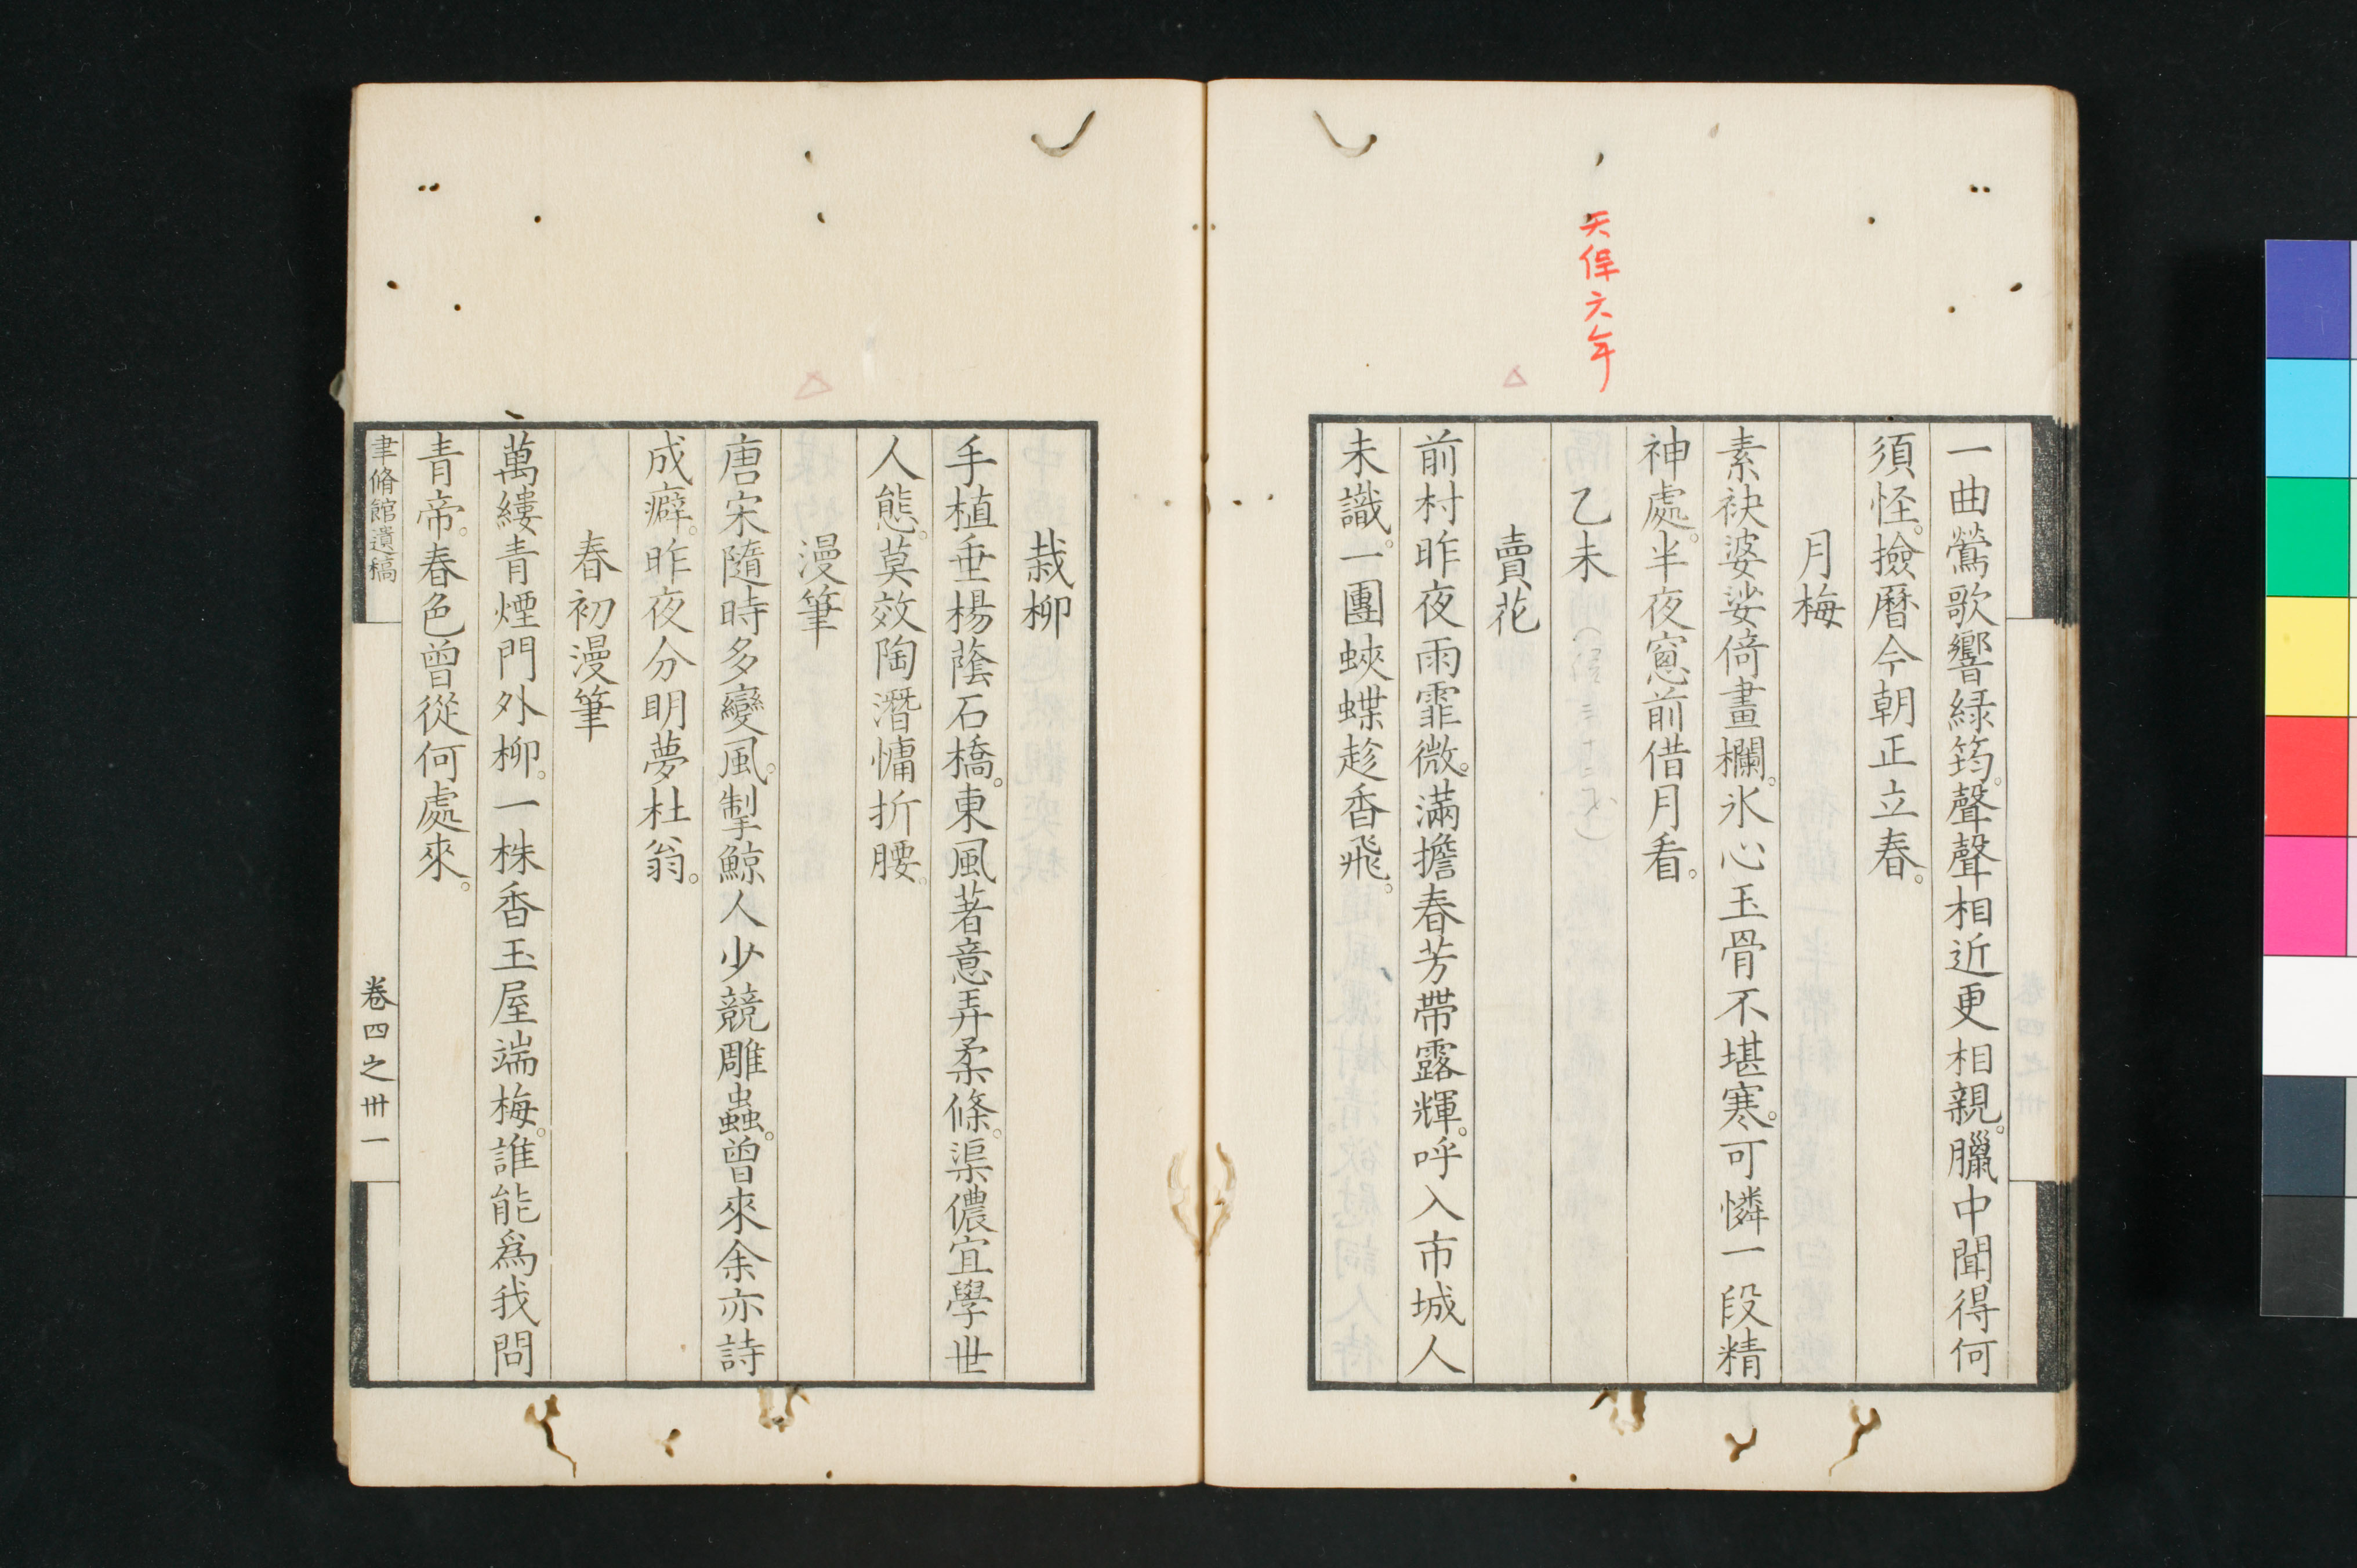 天保六年
一曲鶯歌響緑筠。聲聲相近更相親。臘中聞得何
須怪。撿曆今朝正立春。
月梅
素袂婆娑倚畫欄。氷心玉骨不堪寒。可憐一段精
神處。半夜窓前借月看。
乙未
賣花
前村昨夜雨霏微。滿擔春芳帶露輝。呼入市城人
未識。一團蛺蝶趁香飛。
栽柳
手植垂楊蔭石橋。東風著意弄柔條。渠儂宜學世
人態。莫效陶潛慵折腰。
漫筆
唐宋隨時多變風。掣鯨人少競雕蟲。曾來余亦詩
成癖。昨夜分明夢杜翁。
春初漫筆
萬縷青煙門外柳。一株香玉屋端梅。誰能爲我問
青帝。春色曾從何處來。
聿脩館遺稿
卷四之卅一